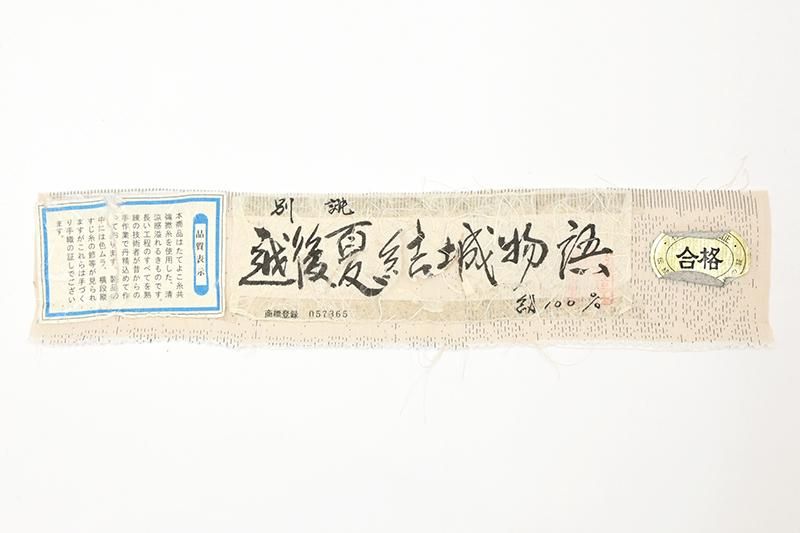 品質表示
本商品はたてよこ糸共
強撚糸を使用した、清
涼感溢れるきものです。
長い工程のすべてを熟
練の技術者が昔からの
手作業で丹精込めて作
っております。製品の
中には色ムラ、横段縦
すじ糸の節等が見られ
ますがこれらは手づく
り手織の証しでござい
ます。
別誂
越後夏結城物語
絹100%
商標登録 057365
合格